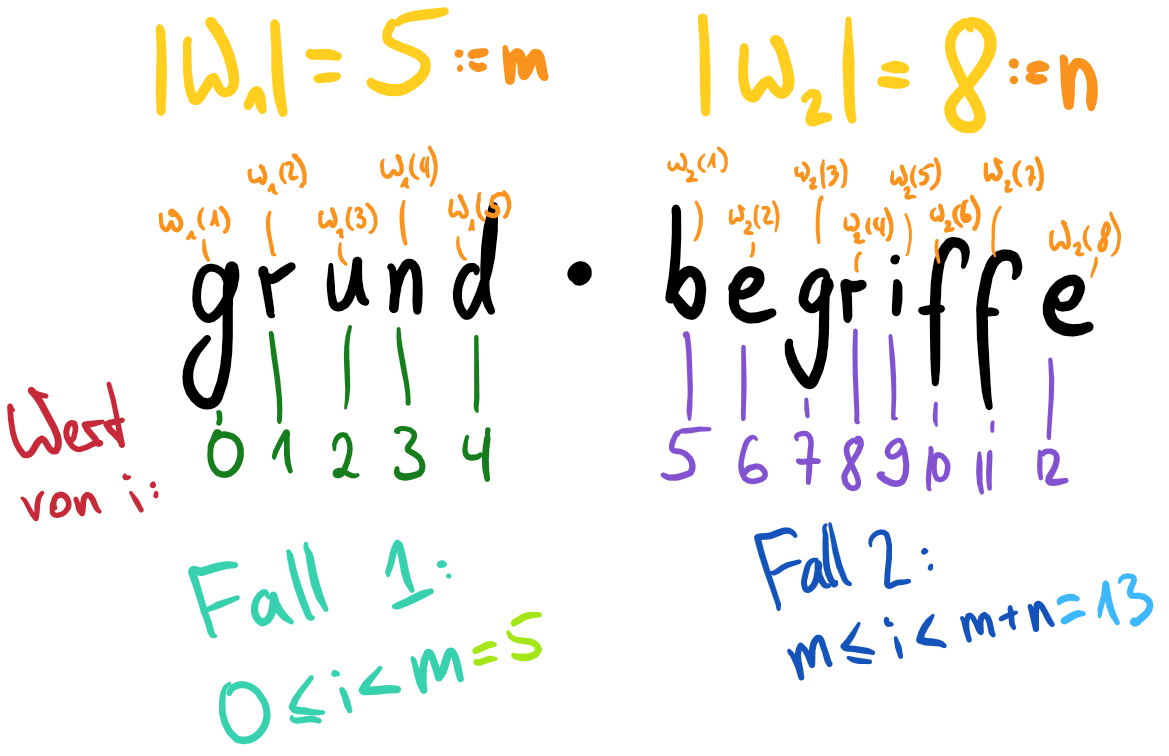 |w₁| = 5 := m |w₂| = 8 := n
w₁(1) w₁(2) w₁(3) w₁(4) w₁(5) w₂(1) w₂(2) w₂(3) w₂(4) w₂(5) w₂(6) w₂(7) w₂(8)
grund · begriffe
Wert
von i:
0 1 2 3 4 5 6 7 8 9 10 11 12
Fall 1:
0 ≤ i < m = 5
Fall 2:
m ≤ i < m + n = 13